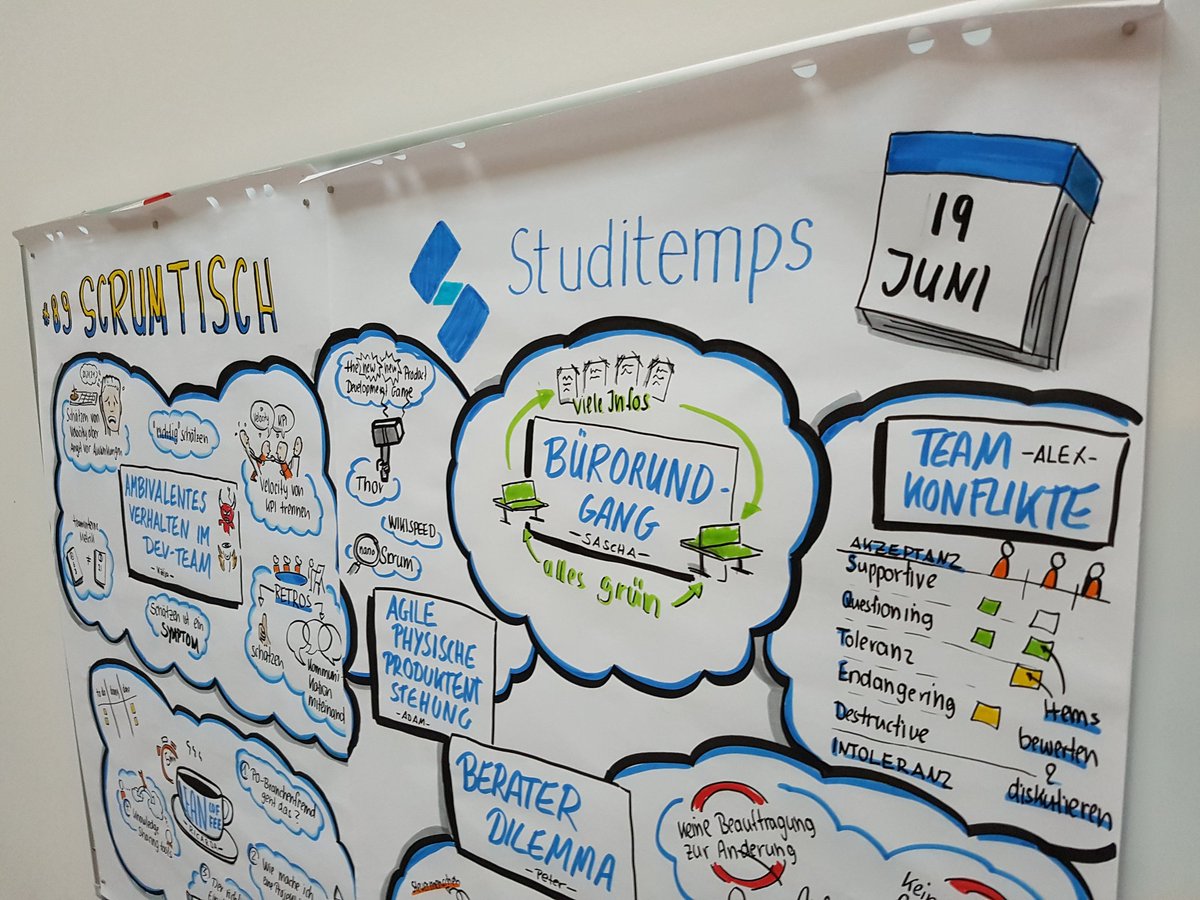 #89 SCRUMTISCH
Studitemps
19
JUNI
Schätzen von
Velocity oder
Angst vor Auswirkungen
"richtig" schätzen
Velocity
KPI
Velocity von
KPI trennen
AMBIVALENTES
VERHALTEN IM
DEV-TEAM
- Katja -
teaminterne
Metrik
≠
Schätzen ist ein
SYMPTOM
RETROS
schätzen
Kommuni-
kation
miteinand
the new new Product
Development Game
Thor
WIKISPEED
nano
Scrum
AGILE
PHYSISCHE
PRODUKTENT
STEHUNG
-ADAM-
viele Infos
BÜRORUND-
GANG
-SASCHA-
alles grün
TEAM -ALEX-
KONFLIKTE
AKZEPTANZ
Supportive
Questioning
Toleranz
Endangering
Destructive
INTOLERANZ
Items
bewerten
&
diskutieren
to do
done
LEAN COF
FEE
-RICARDA-
knowledge
sharing tools
1 PO-Branchenfremd
geht das?
2 Wie mache ich
3 Der
BERATER
DILEMMA
-Peter-
keine Beauftragung
zur Änderung
Kein